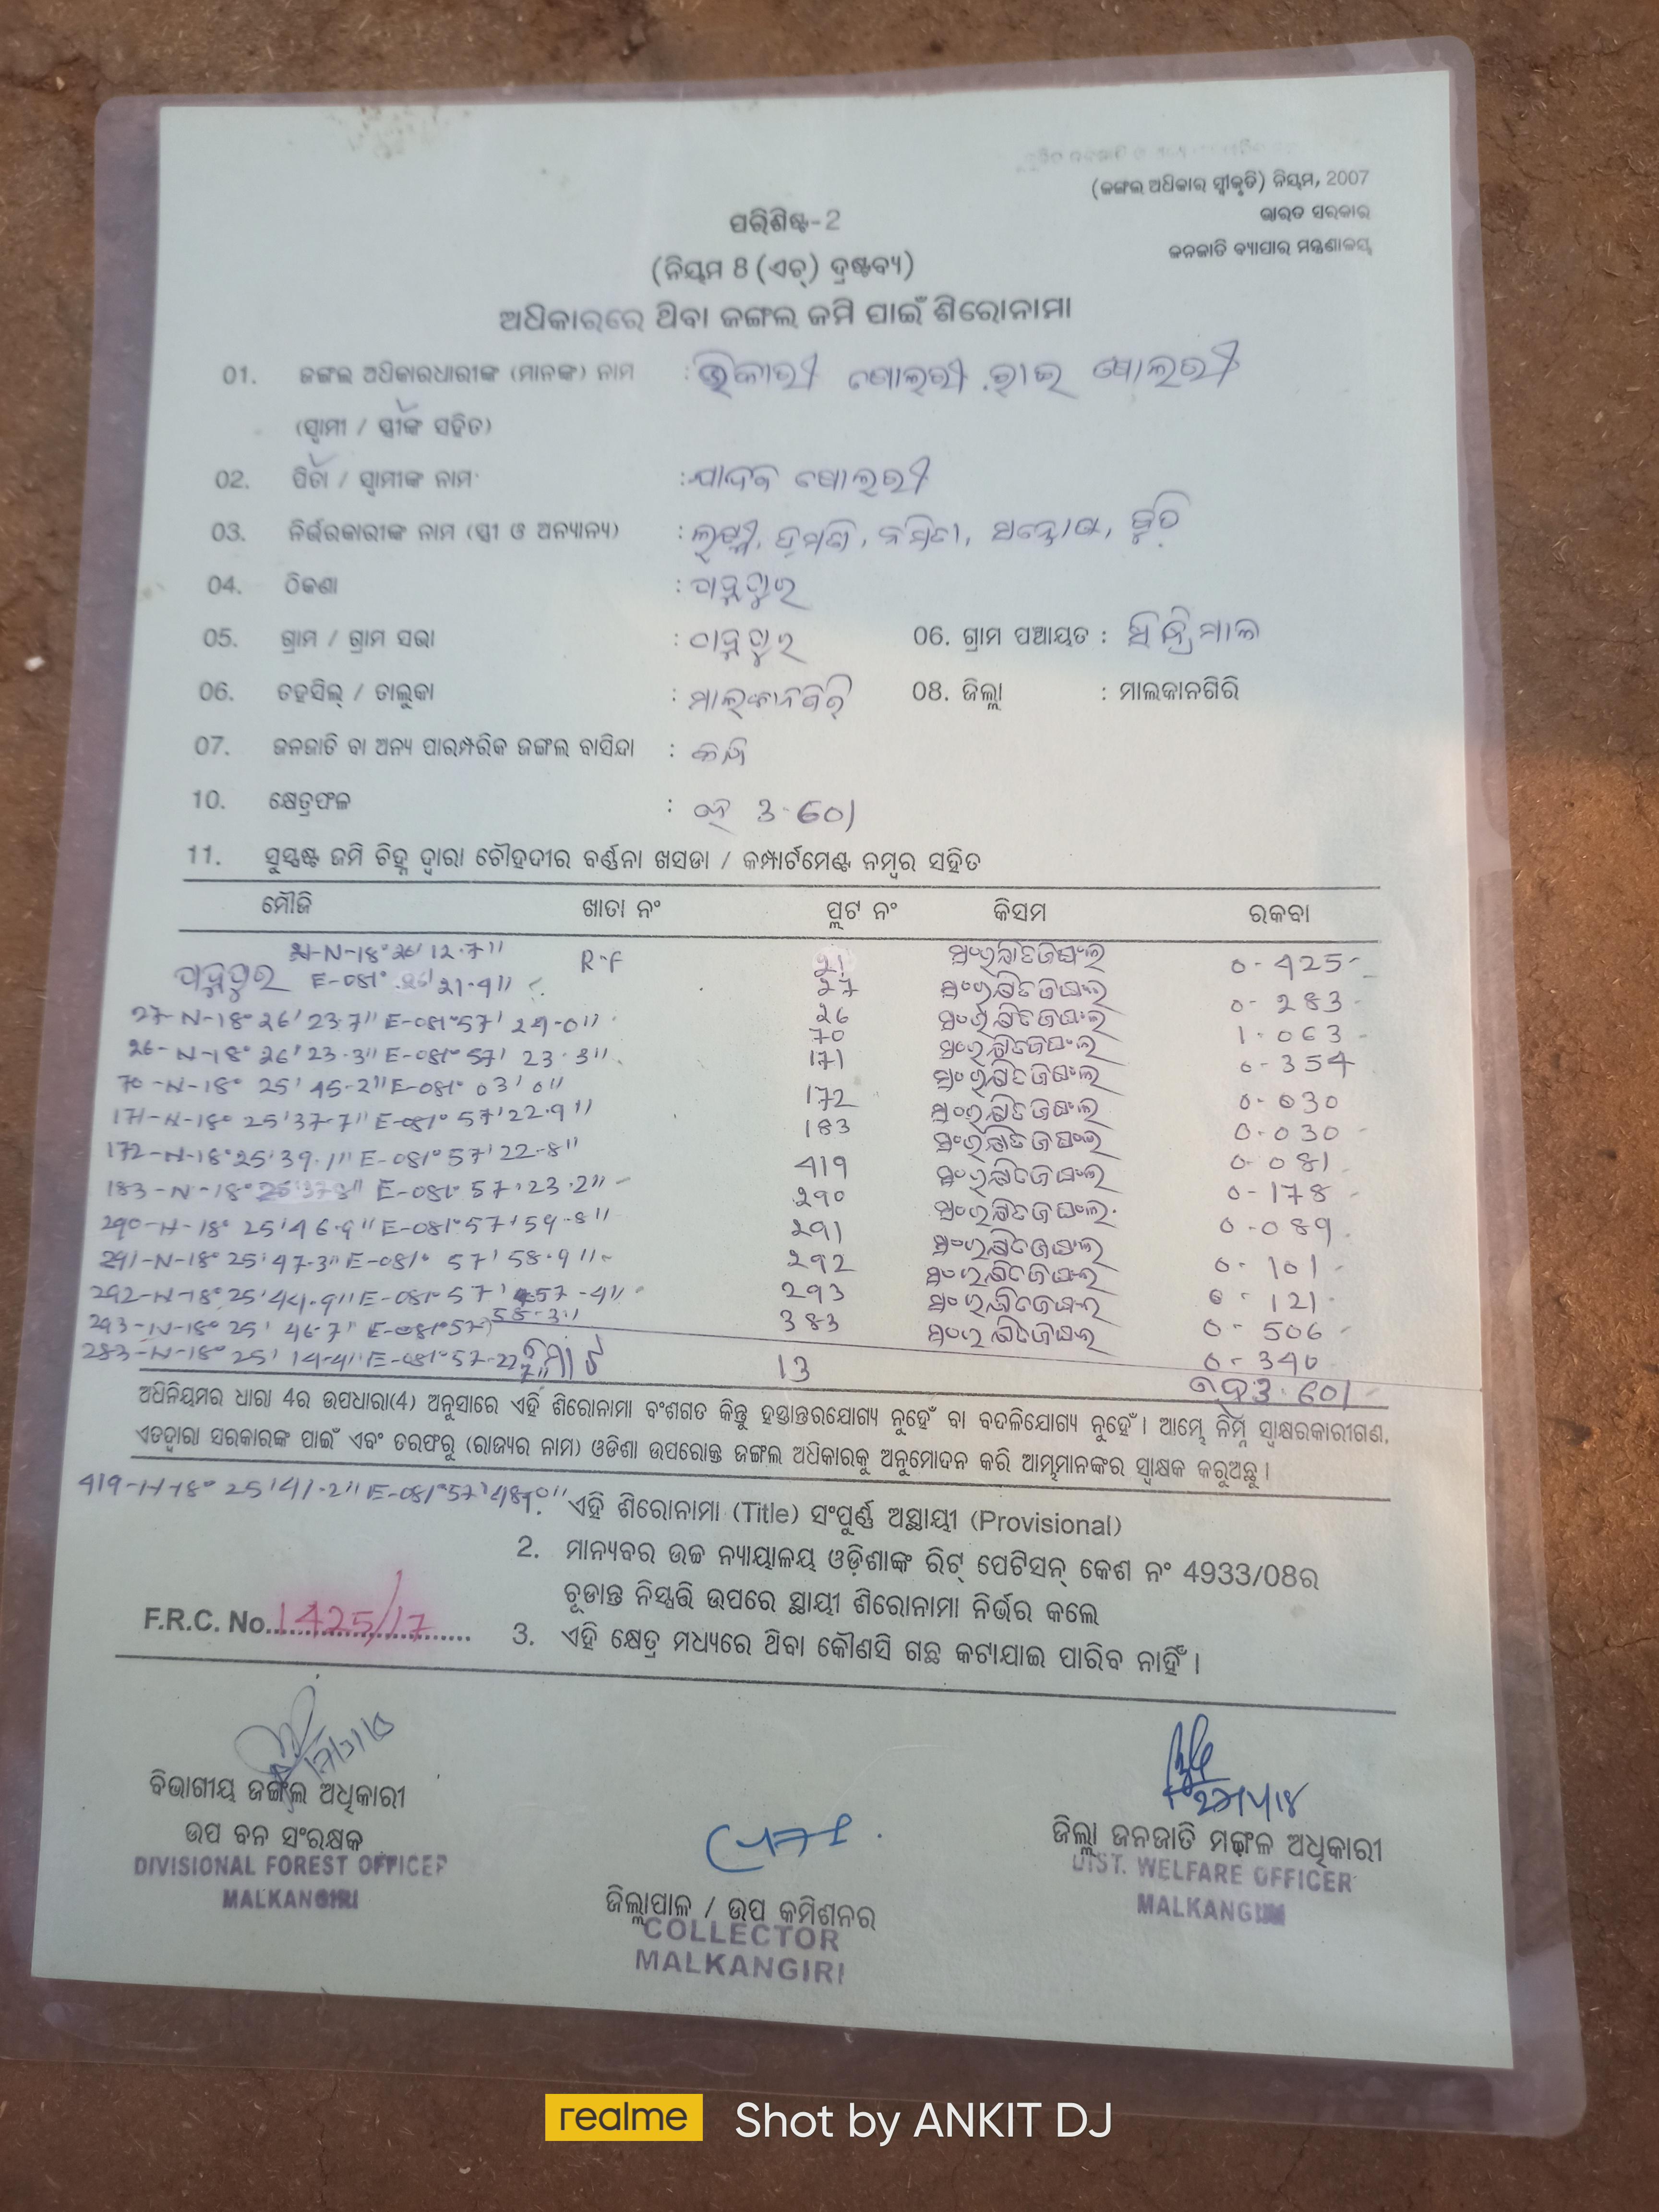 (ଜଙ୍ଗଲ ଅଧିକାର ସ୍ୱୀକୃତି) ନିୟମ, 2007
ଭାରତ ସରକାର
ଜନଜାତି ବ୍ୟାପାର ମନ୍ତ୍ରଣାଳୟ
ପରିଶିଷ୍ଟ-2
(ନିୟମ 8 (ଏଚ୍) ଦ୍ରଷ୍ଟବ୍ୟ)
ଅଧିକାରରେ ଥିବା ଜଙ୍ଗଲ ଜମି ପାଇଁ ଶିରୋନାମା
01. ଜଙ୍ଗଲ ଅଧିକାରଧାରୀଙ୍କ (ମାନଙ୍କ) ନାମ :
(ସ୍ୱାମୀ / ସ୍ତ୍ରୀଙ୍କ ସହିତ)
02. ପିତା / ସ୍ୱାମୀଙ୍କ ନାମ :
03. ନିର୍ଭରକାରୀଙ୍କ ନାମ (ସ୍ତ୍ରୀ ଓ ଅନ୍ୟାନ୍ୟ) :
04. ଠିକଣା :
05. ଗ୍ରାମ / ଗ୍ରାମ ସଭା : 06. ଗ୍ରାମ ପଞ୍ଚାୟତ :
06. ତହସିଲ୍ / ତାଲୁକା : ମାଲ୍‌କାନଗିରି 08. ଜିଲ୍ଲା : ମାଲକାନଗିରି
07. ଜନଜାତି ବା ଅନ୍ୟ ପାରମ୍ପରିକ ଜଙ୍ଗଲ ବାସିନ୍ଦା :
10. କ୍ଷେତ୍ରଫଳ : ହେ 3-601
11. ସୁସ୍ପଷ୍ଟ ଜମି ଚିହ୍ନ ଦ୍ୱାରା ଚୌହଦୀର ବର୍ଣ୍ଣନା ଖସଡା / କମ୍ପାର୍ଟମେଣ୍ଟ ନମ୍ବର ସହିତ
ମୌଜି ଖାତା ନଂ ପ୍ଲଟ ନଂ କିସମ ରକବା
21-N-18° 26' 12.7" R-F 21 ସଂରକ୍ଷିତ ଜଙ୍ଗଲ 0-425
E-081° 21.4" 27 ସଂରକ୍ଷିତ ଜଙ୍ଗଲ 0-283
27-N-18° 26' 23.7" E-081° 57' 24.0" 26 ସଂରକ୍ଷିତ ଜଙ୍ଗଲ 1-063
26-N-18° 26' 23.3" E-081° 57' 23.3" 70 ସଂରକ୍ଷିତ ଜଙ୍ଗଲ 0-354
70-N-18° 25' 45.2" E-081° 03' 0" 171 ସଂରକ୍ଷିତ ଜଙ୍ଗଲ 0-030
171-N-18° 25' 37.7" E-081° 57' 22.9" 172 ସଂରକ୍ଷିତ ଜଙ୍ଗଲ 0-030
172-N-18° 25' 39.1" E-081° 57' 22.8" 183 ସଂରକ୍ଷିତ ଜଙ୍ଗଲ 0-081
183-N-18° E-081° 57' 23.2" 419 ସଂରକ୍ଷିତ ଜଙ୍ଗଲ 0-178
290-N-18° 25' 46.9" E-081° 57' 59.8" 290 ସଂରକ୍ଷିତ ଜଙ୍ଗଲ 0-089
291-N-18° 25' 47.3" E-081° 57' 58.9" 291 ସଂରକ୍ଷିତ ଜଙ୍ଗଲ 0-101
292-N-18° 25' 44.9" E-081° 57' 57.4" 292 ସଂରକ୍ଷିତ ଜଙ୍ଗଲ 0-121
293-N-18° 25' 46.7" E-081° 57' 58.3" 293 ସଂରକ୍ଷିତ ଜଙ୍ଗଲ 0-506
283-N-18° 25' 14.4" E-081° 57-22.7" 383 ସଂରକ୍ଷିତ ଜଙ୍ଗଲ 0-340
ମୋଟ 13 ହେ 3.601
ଅଧିନିୟମର ଧାରା 4ର ଉପଧାରା(4) ଅନୁସାରେ ଏହି ଶିରୋନାମା ବଂଶଗତ କିନ୍ତୁ ହସ୍ତାନ୍ତରଯୋଗ୍ୟ ନୁହେଁ ବା ବଦଳିଯୋଗ୍ୟ ନୁହେଁ। ଆମ୍ଭେ ନିମ୍ନ ସ୍ୱାକ୍ଷରକାରୀଗଣ,
ଏତଦ୍ୱାରା ସରକାରଙ୍କ ପାଇଁ ଏବଂ ତରଫରୁ (ରାଜ୍ୟର ନାମ) ଓଡିଶା ଉପରୋକ୍ତ ଜଙ୍ଗଲ ଅଧିକାରକୁ ଅନୁମୋଦନ କରି ଆମ୍ଭମାନଙ୍କର ସ୍ୱାକ୍ଷକ କରୁଅଛୁ।
419-N-18° 25' 41.2" E-081° 57'
ଏହି ଶିରୋନାମା (Title) ସଂପୂର୍ଣ୍ଣ ଅସ୍ଥାୟୀ (Provisional)
2. ମାନ୍ୟବର ଉଚ୍ଚ ନ୍ୟାୟାଳୟ ଓଡ଼ିଶାଙ୍କ ରିଟ୍ ପେଟିସନ୍ କେଶ ନଂ 4933/08ର
ଚୂଡାନ୍ତ ନିସ୍ପତ୍ତି ଉପରେ ସ୍ଥାୟୀ ଶିରୋନାମା ନିର୍ଭର କଲେ
F.R.C. No. 1425/17
3. ଏହି କ୍ଷେତ୍ର ମଧ୍ୟରେ ଥିବା କୌଣସି ଗଛ କଟାଯାଇ ପାରିବ ନାହିଁ।
ବିଭାଗୀୟ ଜଙ୍ଗଲ ଅଧିକାରୀ
ଉପ ବନ ସଂରକ୍ଷକ
DIVISIONAL FOREST OFFICER
MALKANGIRI
ଜିଲ୍ଲାପାଳ / ଉପ କମିଶନର
COLLECTOR
MALKANGIRI
ଜିଲ୍ଲା ଜନଜାତି ମଙ୍ଗଳ ଅଧିକାରୀ
DIST. WELFARE OFFICER
MALKANGIRI
realme Shot by ANKIT DJ